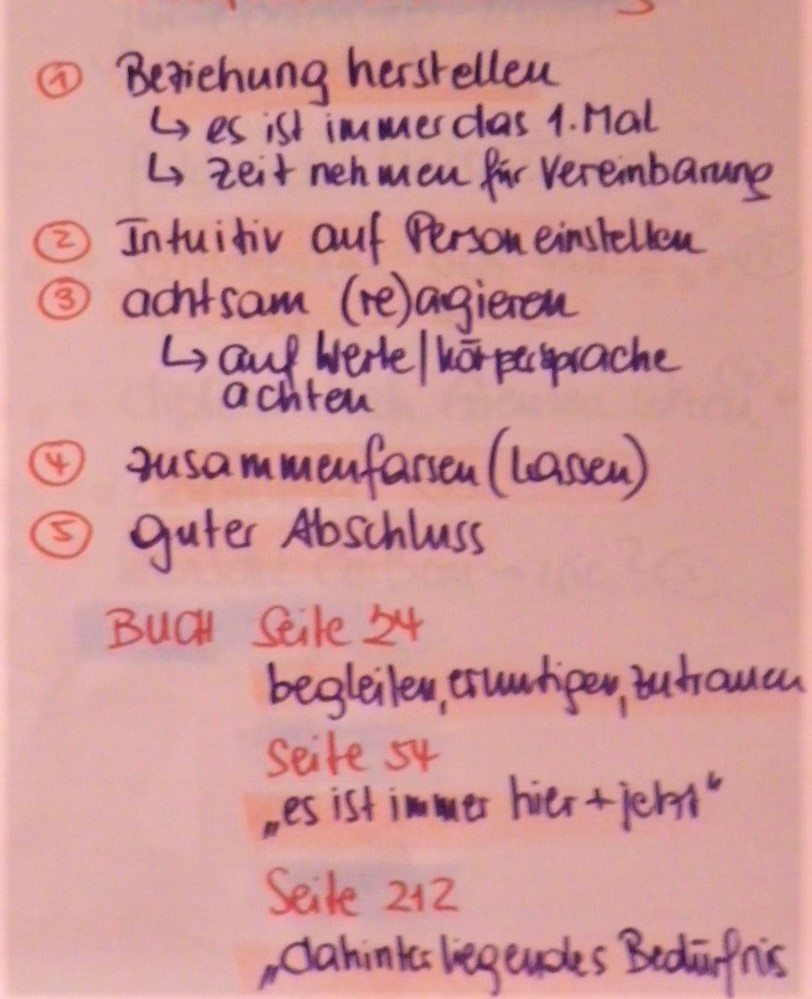 ① Beziehung herstellen
↳ es ist immer das 1. Mal
↳ Zeit nehmen für Vereinbarung
② Intuitiv auf Person einstellen
③ achtsam (re)agieren
↳ auf Werte/Körpersprache
achten
④ zusammenfassen (lassen)
⑤ guter Abschluss
BUCH Seite 24
begleiten, ermutigen, zutrauen
Seite 54
„es ist immer hier + jetzt“
Seite 212
„dahinter liegendes Bedürfnis